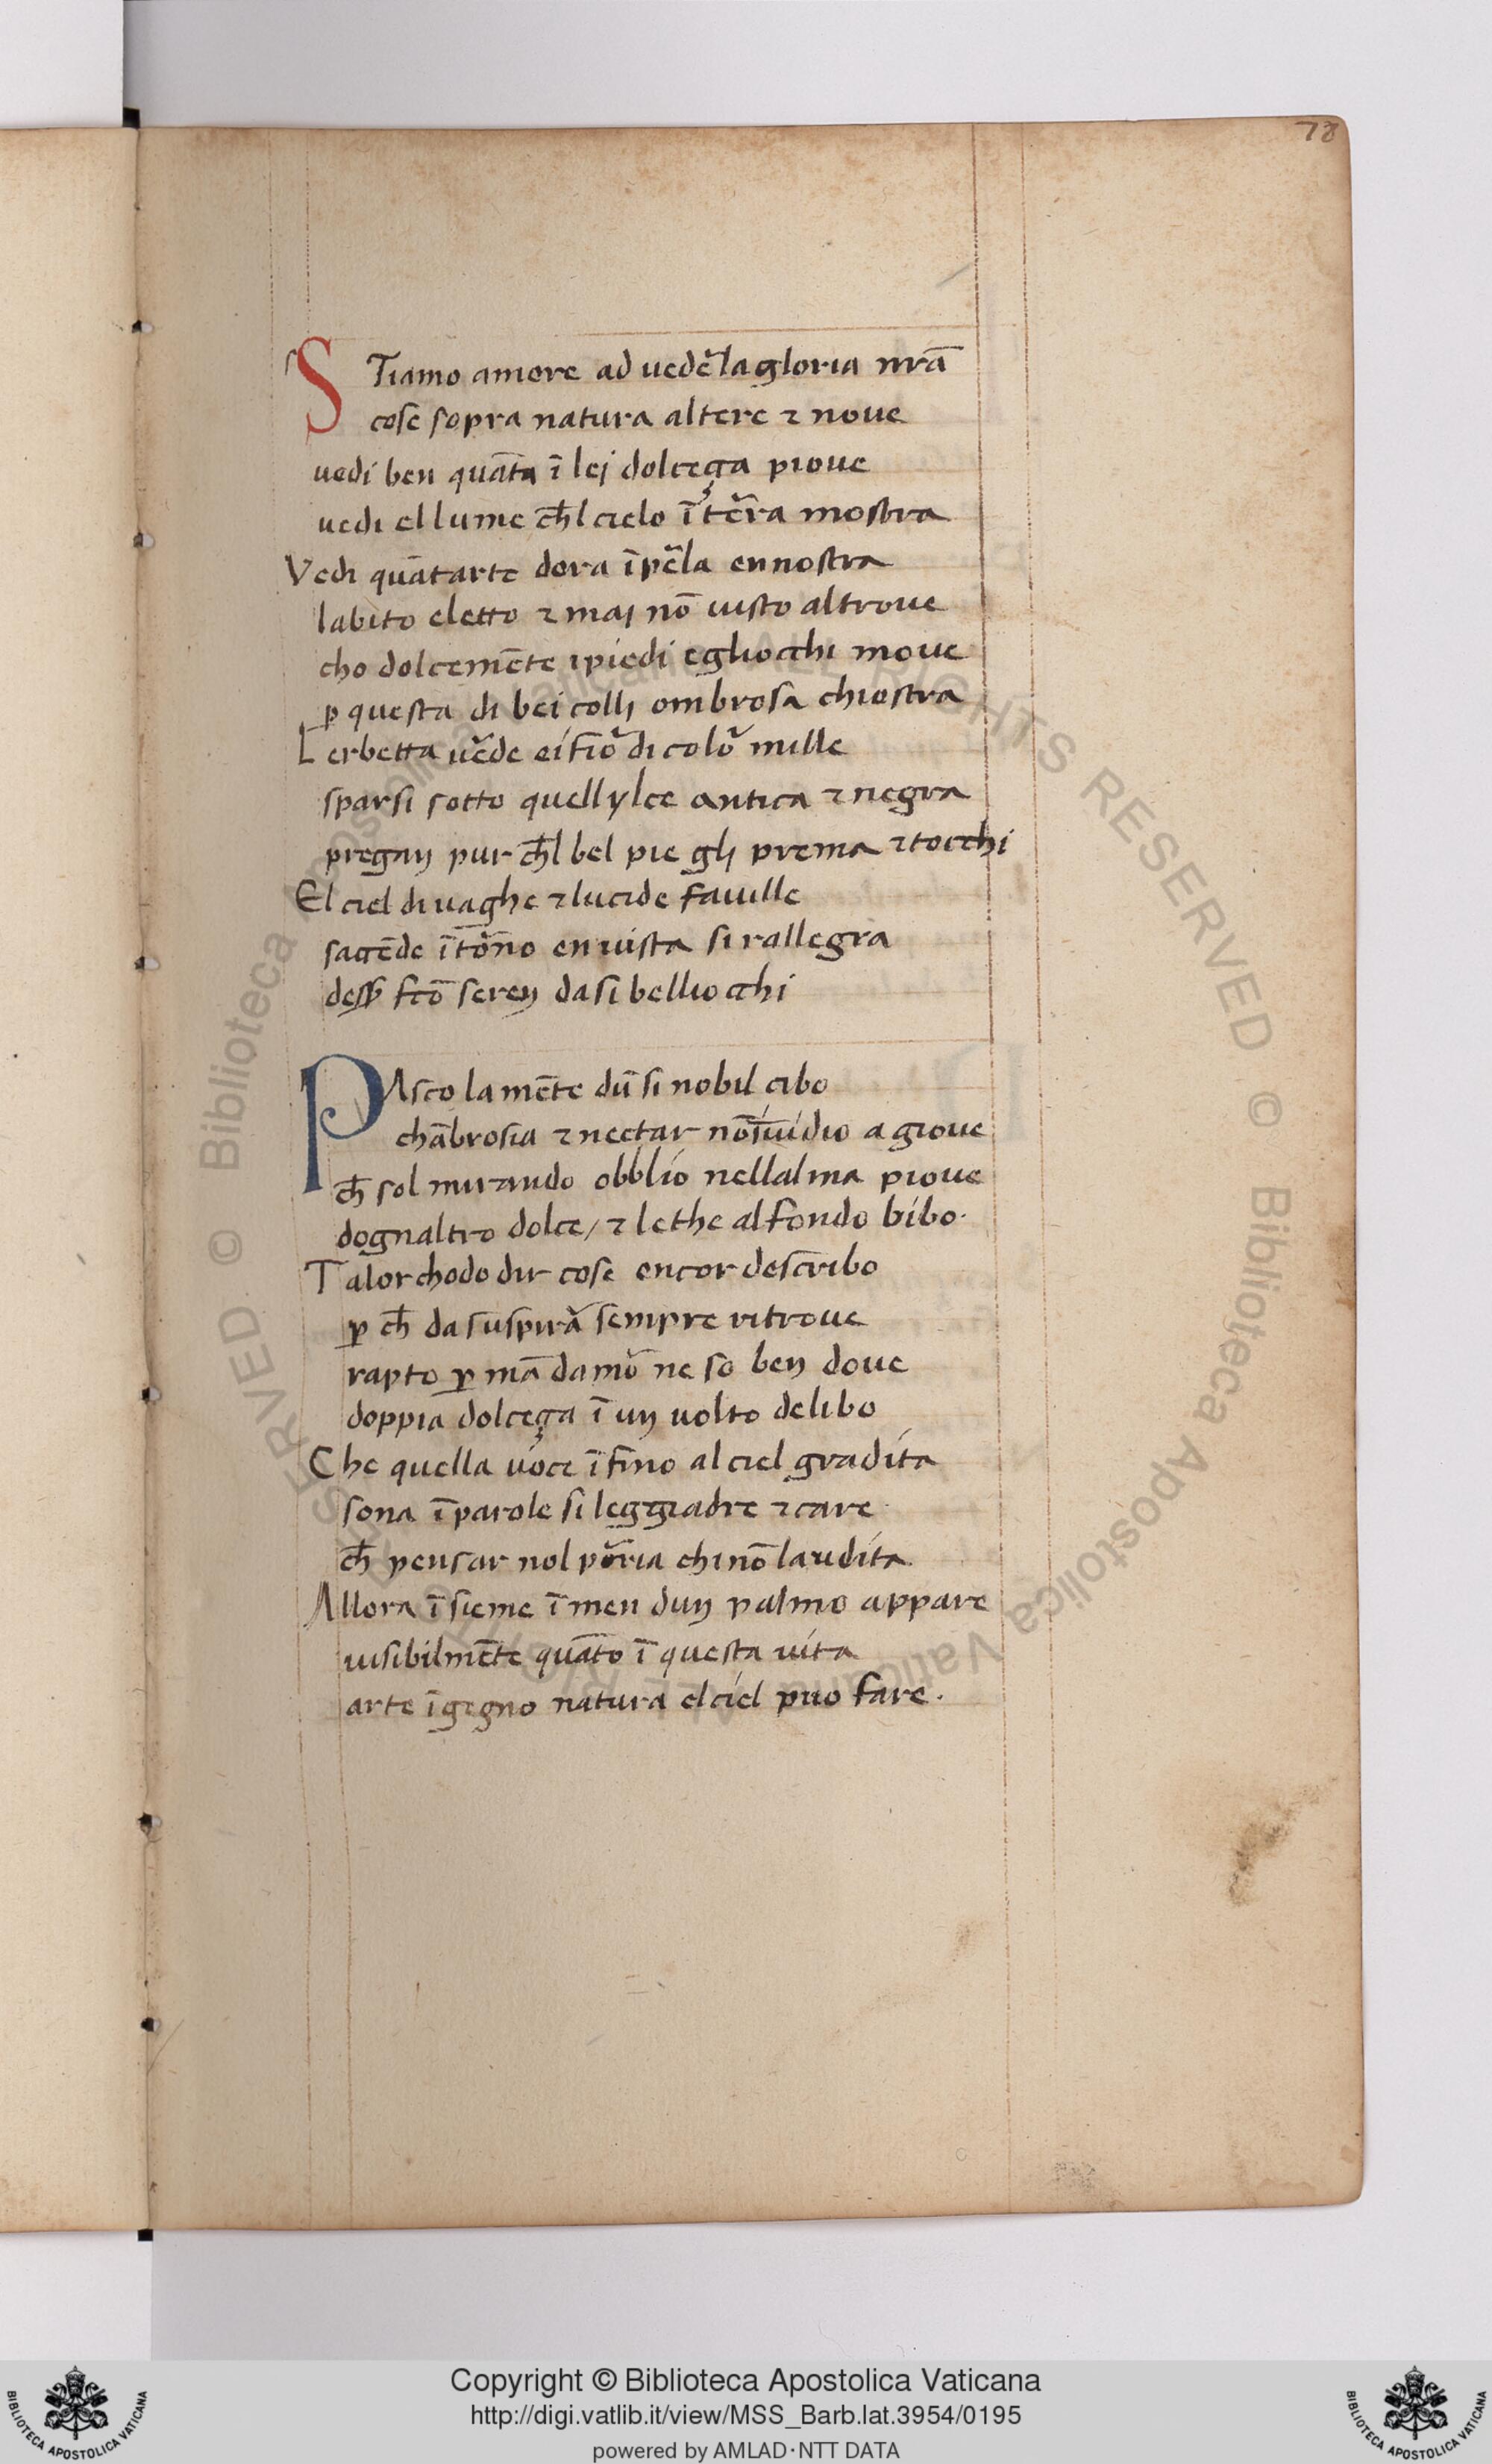 78
STiamo amore ad uedẽ la gloria nrã
cose sopra natura altere ⁊ noue
uedi ben quãta ĩ lej dolceça pioue
uedi el lume ch̄l cielo ĩ tẽra mostra
Vedi quãtarte dora ĩpẽla ennostra
labito eletto ⁊ maj nõ uisto altroue
cho dolcemẽte ipiedi egliocchi moue
ꝑ questa di bei collj ombrosa chiostra
Lerbetta uẽde ei fiõ di colõ mille
sparsi sotto quellylce antica ⁊ negra
pregan pur ch̄l bel pie glj prema ⁊ tocchi
El ciel di uaghe ⁊ lucide fauille
sacẽde ĩtõno en uista si rallegra
dess̄ fcõ seren da si belliocchi
PAsco la mẽte dũ si nobil cibo
chãbrosia ⁊ nectar nõĩuidio a gioue
ch̄ sol mirando obblio nellalma pioue
dognaltro dolce / ⁊ lethe al fondo bibo.
Talor chodo dir cose encor describo
ꝑ ch̄ da suspirã sempre ritroue
rapto ꝑ mã damõ ne so ben doue
doppia dolceça ĩ un uolto delibo
Che quella uoce ĩfino al ciel gradita
sona ĩ parole si leggiadre ⁊ care
ch̄ pensar nol põria chi nõ laudita
Allora ĩsieme ĩ men dun palmo appare
uisibilmẽte quãto ĩ questa uita
arte ĩgegno natura el ciel puo fare.
Biblioteca Apostolica Vaticana ALL RIGHTS RESERVED © Biblioteca Apostolica Vaticana ALL RIGHTS RESERVED ©
Copyright © Biblioteca Apostolica Vaticana
http://digi.vatlib.it/view/MSS_Barb.lat.3954/0195
powered by AMLAD·NTT DATA
BIBLIOTECA APOSTOLICA VATICANA
BIBLIOTECA APOSTOLICA VATICANA